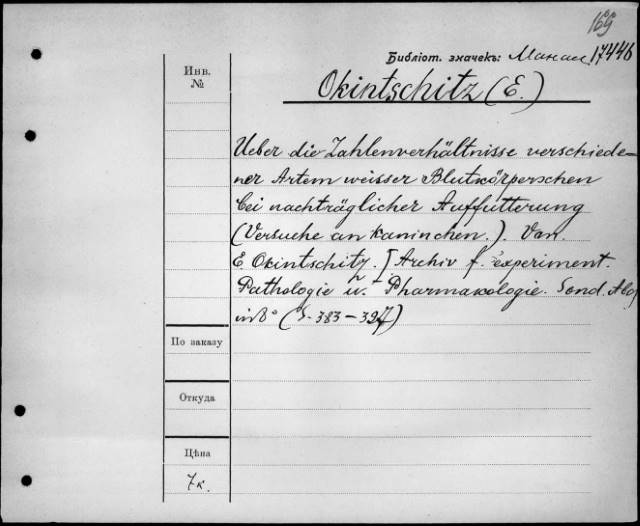 169
Библіот. значекъ: Макал 17446
Инв.
№
Okintschitz (E.)
Ueber die Zahlenverhältnisse verschiede-
ner Artem weisser Blutkörperschen
bei nachträglicher Auffutterung
(Versuche an kaninchen.). Von
E. Okintschitz. [Archiv f. experiment.
Pathologie u. Pharmakologie. Sond. Abg
in 8° (S. 383-397)
По заказу
Откуда
Цѣна
7к.